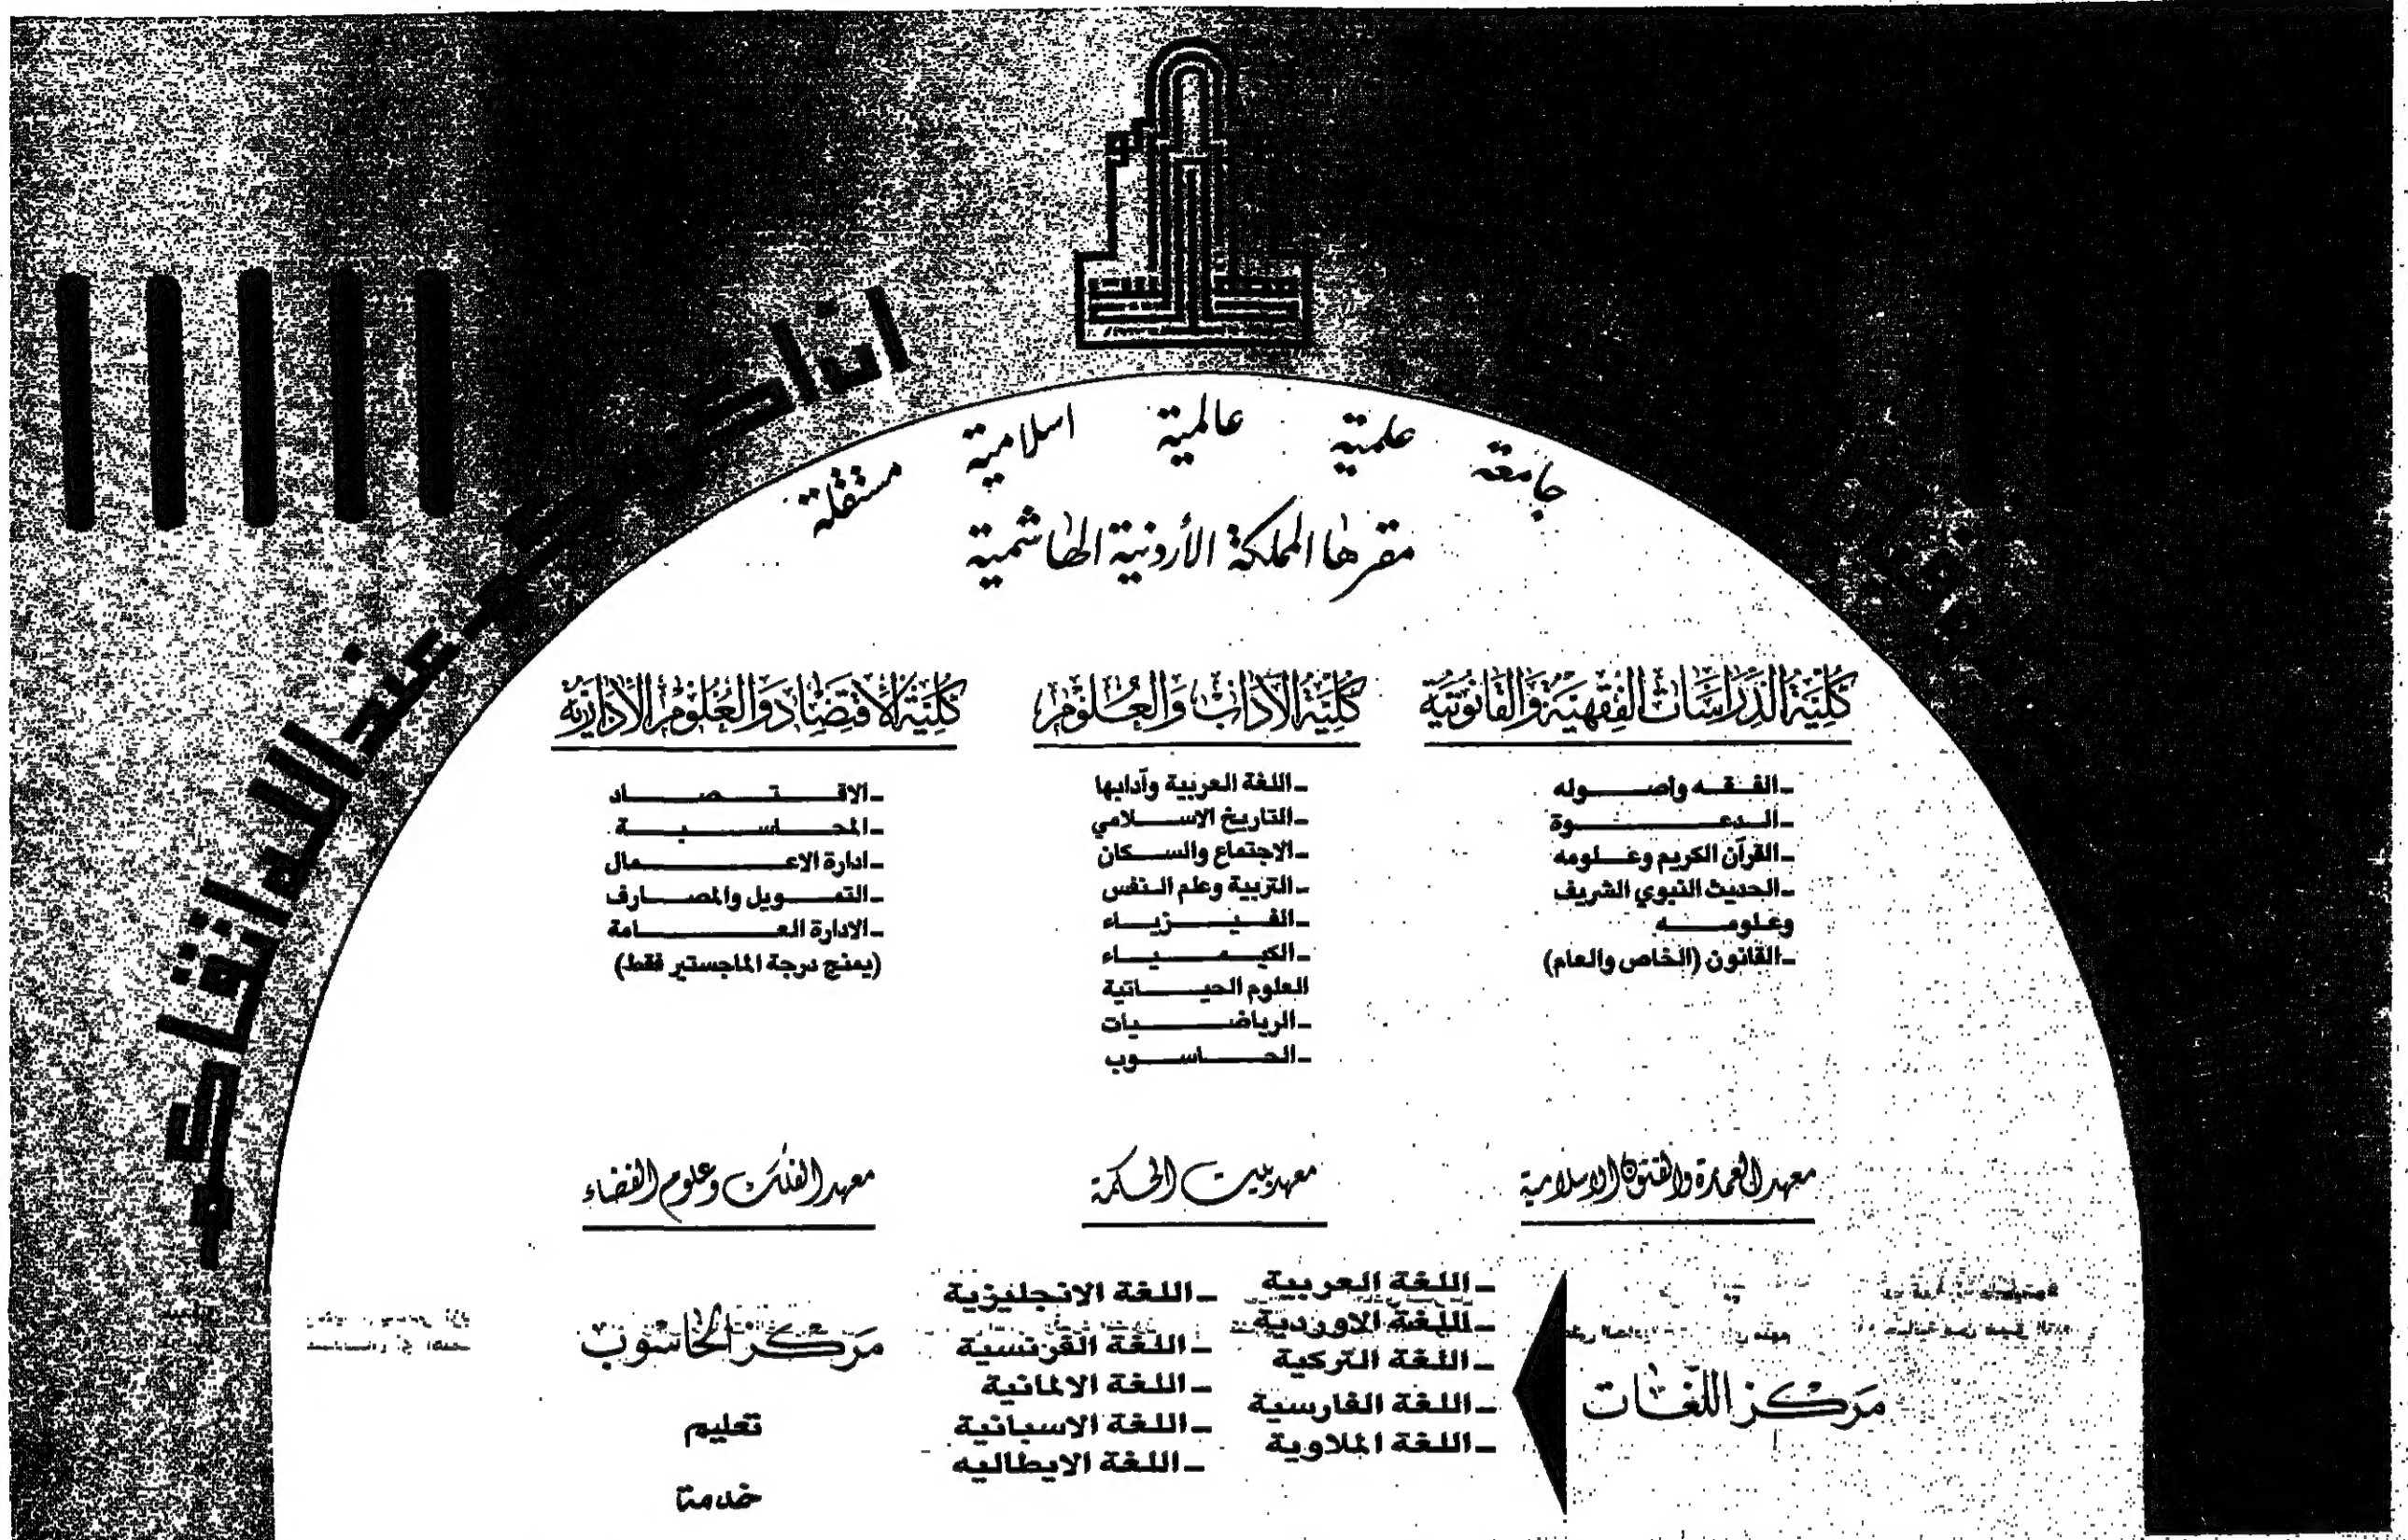 ان أكرمكم عند الله اتقاكم
جامعة علمية عالمية اسلامية مستقلة
مقرها المملكة الأردنية الهاشمية
كلية الدراسات الفقهية والقانونية
ـ الفقه وأصوله
ـ الدعوة
ـ القرآن الكريم وعلومه
ـ الحديث النبوي الشريف
وعلومه
ـ القانون (الخاص والعام)
كلية الآداب والعلوم
ـ اللغة العربية وآدابها
ـ التاريخ الاسلامي
ـ الاجتماع والسكان
ـ التربية وعلم النفس
ـ الفيزياء
ـ الكيمياء
العلوم الحياتية
ـ الرياضيات
ـ الحاسوب
كلية الاقتصاد والعلوم الادارية
ـ الاقتصاد
ـ المحاسبة
ـ ادارة الاعمال
ـ التمويل والمصارف
ـ الادارة العامة
(يمنح درجة الماجستير فقط)
معهد العمارة والفنون الاسلامية
معهد بيت الحكمة
معهد الفلك وعلوم الفضاء
مركز اللغات
ـ اللغة العربية
ـ اللغة الاوردية
ـ اللغة التركية
ـ اللغة الفارسية
ـ اللغة الملاوية
ـ اللغة الانجليزية
ـ اللغة الفرنسية
ـ اللغة الالمانية
ـ اللغة الاسبانية
ـ اللغة الايطاليه
مركز الحاسوب
تعليم
خدمة